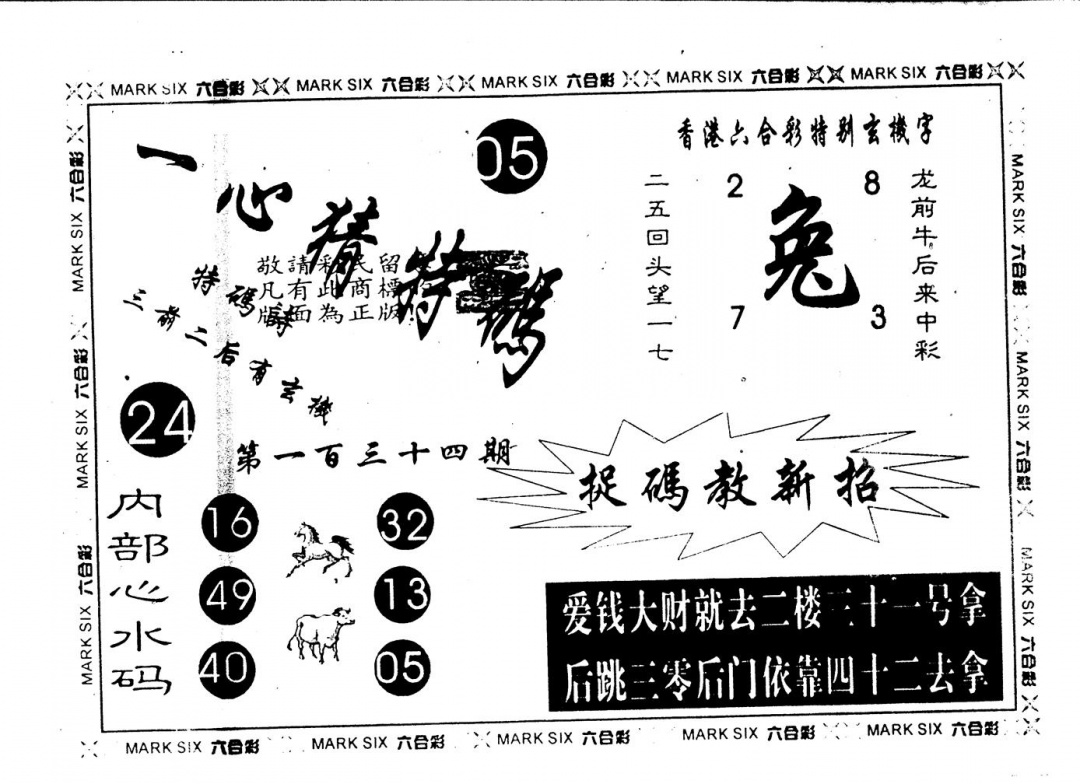 MARK SIX 六合彩 MARK SIX 六合彩 MARK SIX 六合彩 MARK SIX 六合彩 MARK SIX 六合彩
一心猜特碼
05
香港六合彩特别玄機字
二五回头望一七
2 8
兔
7 3
龙前牛后来中彩
敬請彩民留
凡有此商標
版面為正版!
特碼詩
三前二后有玄機
24
第一百三十四期
捉碼教新招
内部心水码
16 32
49 13
40 05
爱钱大财就去二楼三十一号拿
后跳三零后门依靠四十二去拿
MARK SIX 六合彩 MARK SIX 六合彩 MARK SIX 六合彩
MARK SIX 六合彩 MARK SIX 六合彩 MARK SIX 六合彩
MARK SIX 六合彩 MARK SIX 六合彩 MARK SIX 六合彩 MARK SIX 六合彩 MARK SIX 六合彩